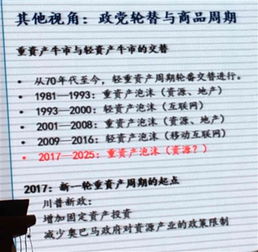 其他视角：政党轮替与商品周期
重资产牛市与轻资产牛市的交替
• 从70年代至今，轻重资产周期轮番交替进行。
• 1981—1993：重资产泡沫（资源、地产）
• 1993—2000：轻资产泡沫（互联网）
• 2001—2008：重资产泡沫（资源、地产）
• 2009—2016：轻资产泡沫（移动互联网）
• 2017—2025：重资产泡沫（资源？）
2017：新一轮重资产周期的起点
川普新政：
增加固定资产投资
减少奥巴马政府对资源产业的政策限制